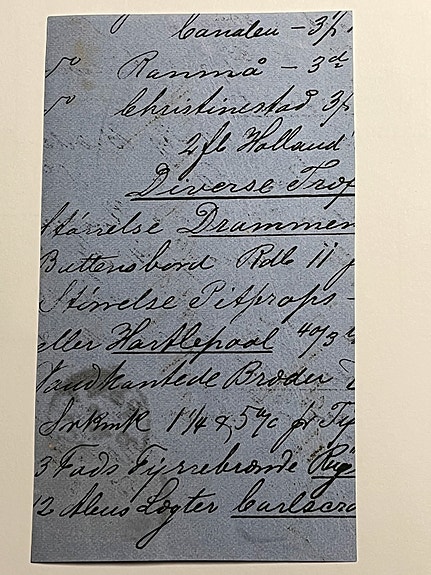 Canalen - 3/
do Ranmå - 3d
do Christinestad 3/
2 fl Holland
Diverse Trof
Størrelse Drammen
Battensbord Rdb 11
Størrelse Pitprops -
eller Hartlepool 40/3
Vandkantede Brœder
Smkmk 1 1/4 & 5%
3 Fods Fyrrebrænde
12 Alens Lægter Carlscro